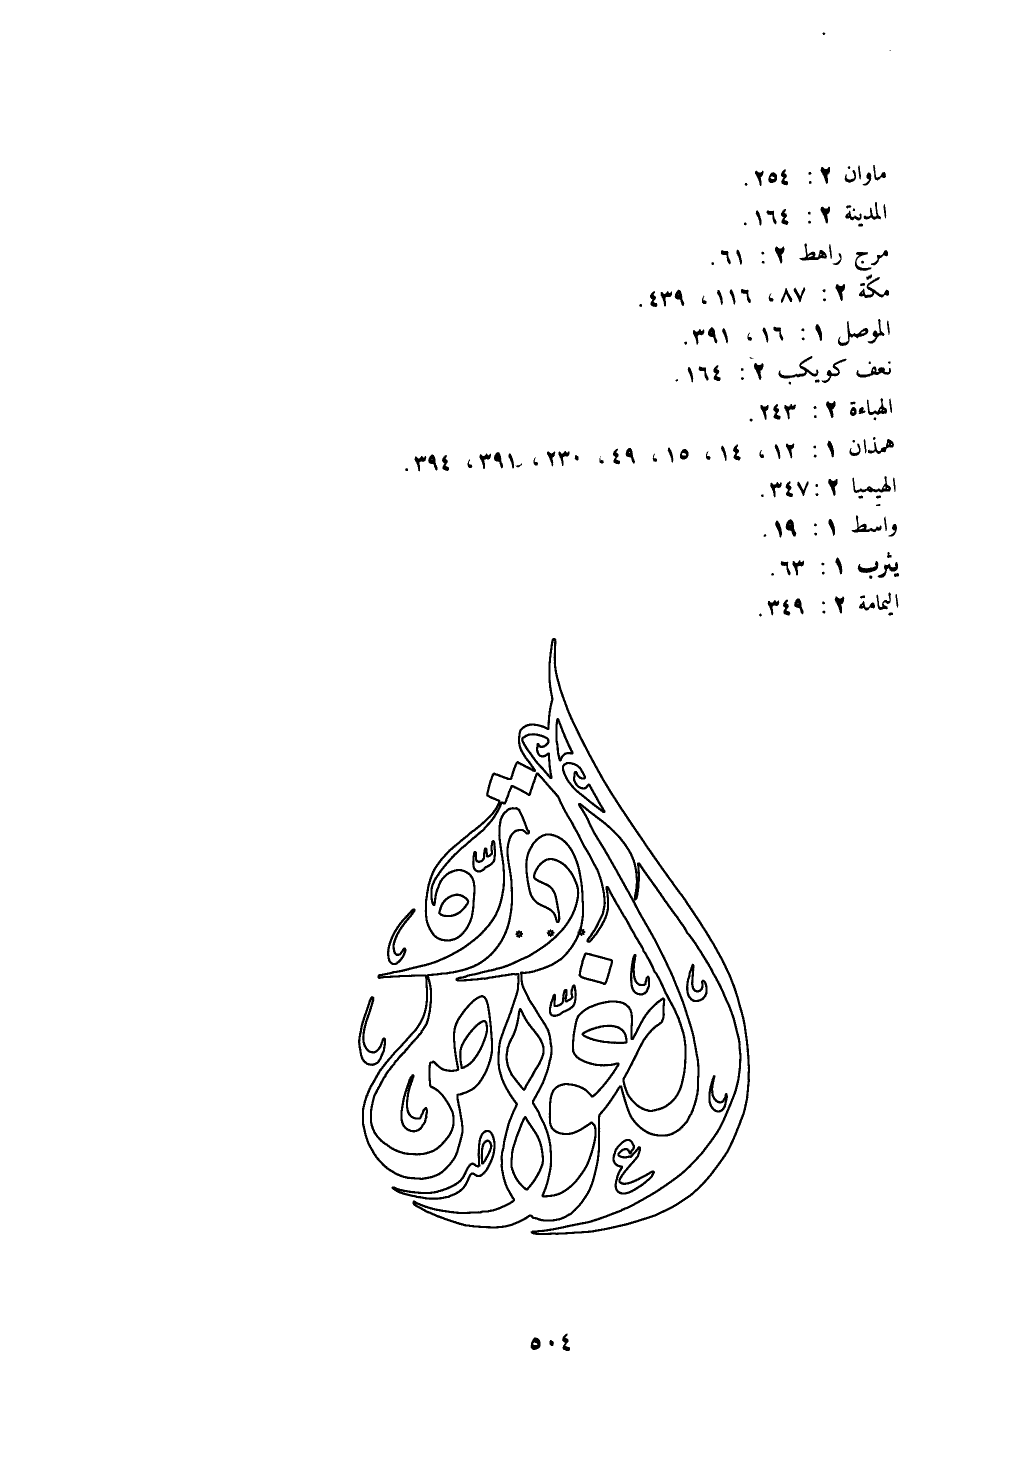 ماوان ٢ : ٢٥٤.
المدينة ٢ : ١٦٤.
مرج راهط ٢ : ٦١.
مكّة ٢ : ٨٧، ١١٦، ٤٣٩.
الموصل ١ : ١٦، ٣٩١.
نعف كويكب ٢ : ١٦٤.
الهباءة ٢ : ٢٤٣.
همذان ١ : ١٢، ١٤، ١٥، ٤٩، ٢٣٠، ٣٩١، ٣٩٤.
الهيميا ٢ : ٣٤٧.
واسط ١ : ١٩.
يثرب ١ : ٦٣.
اليمامة ٢ : ٣٤٩.
درّة
الغوّاص
٥٠٤